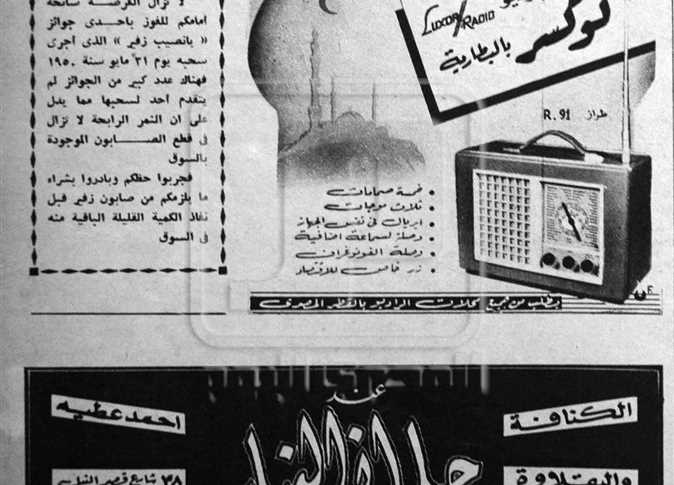 لوكسر
LUXOR RADIO
بالبطارية
طراز R.91
• خمسة صمامات
• ثلاث موجات
• ايريال في نفس الجهاز
• وصلة لسماعة اضافية
• وصلة الفونوغراف
• زر خاص للاقتصاد
يطلب من جميع محلات الراديو بالقطر المصرى
لا تزال الفرصة سانحة
أمامكم للفوز باحدى جوائز
« يانصيب زفير » الذى أجرى
سحبه يوم ٣١ مايو سنة ١٩٥٠
فهناك عدد كبير من الجوائز لم
يتقدم أحد لسحبها مما يدل
على ان النمر الرابحة لا تزال
فى قطع الصابون الموجودة
بالسوق
فجربوا حظكم وبادروا بشراء
ما يلزمكم من صابون زفير قبل
نفاذ الكمية القليلة الباقية منه
فى السوق
المصرى اليوم
الكنافة
عند
احمد عطيه
والبقلاوة
٣٨ شارع قصر النيل